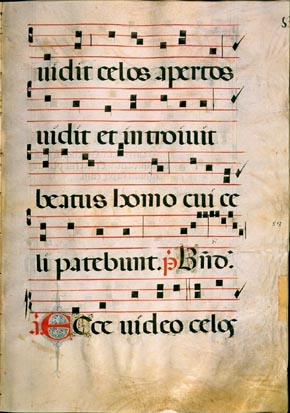 uidit celos apertos
uidit et introiuit
beatus homo cui ce
li patebunt. ps Bñd̄:
a Ecce uideo celos